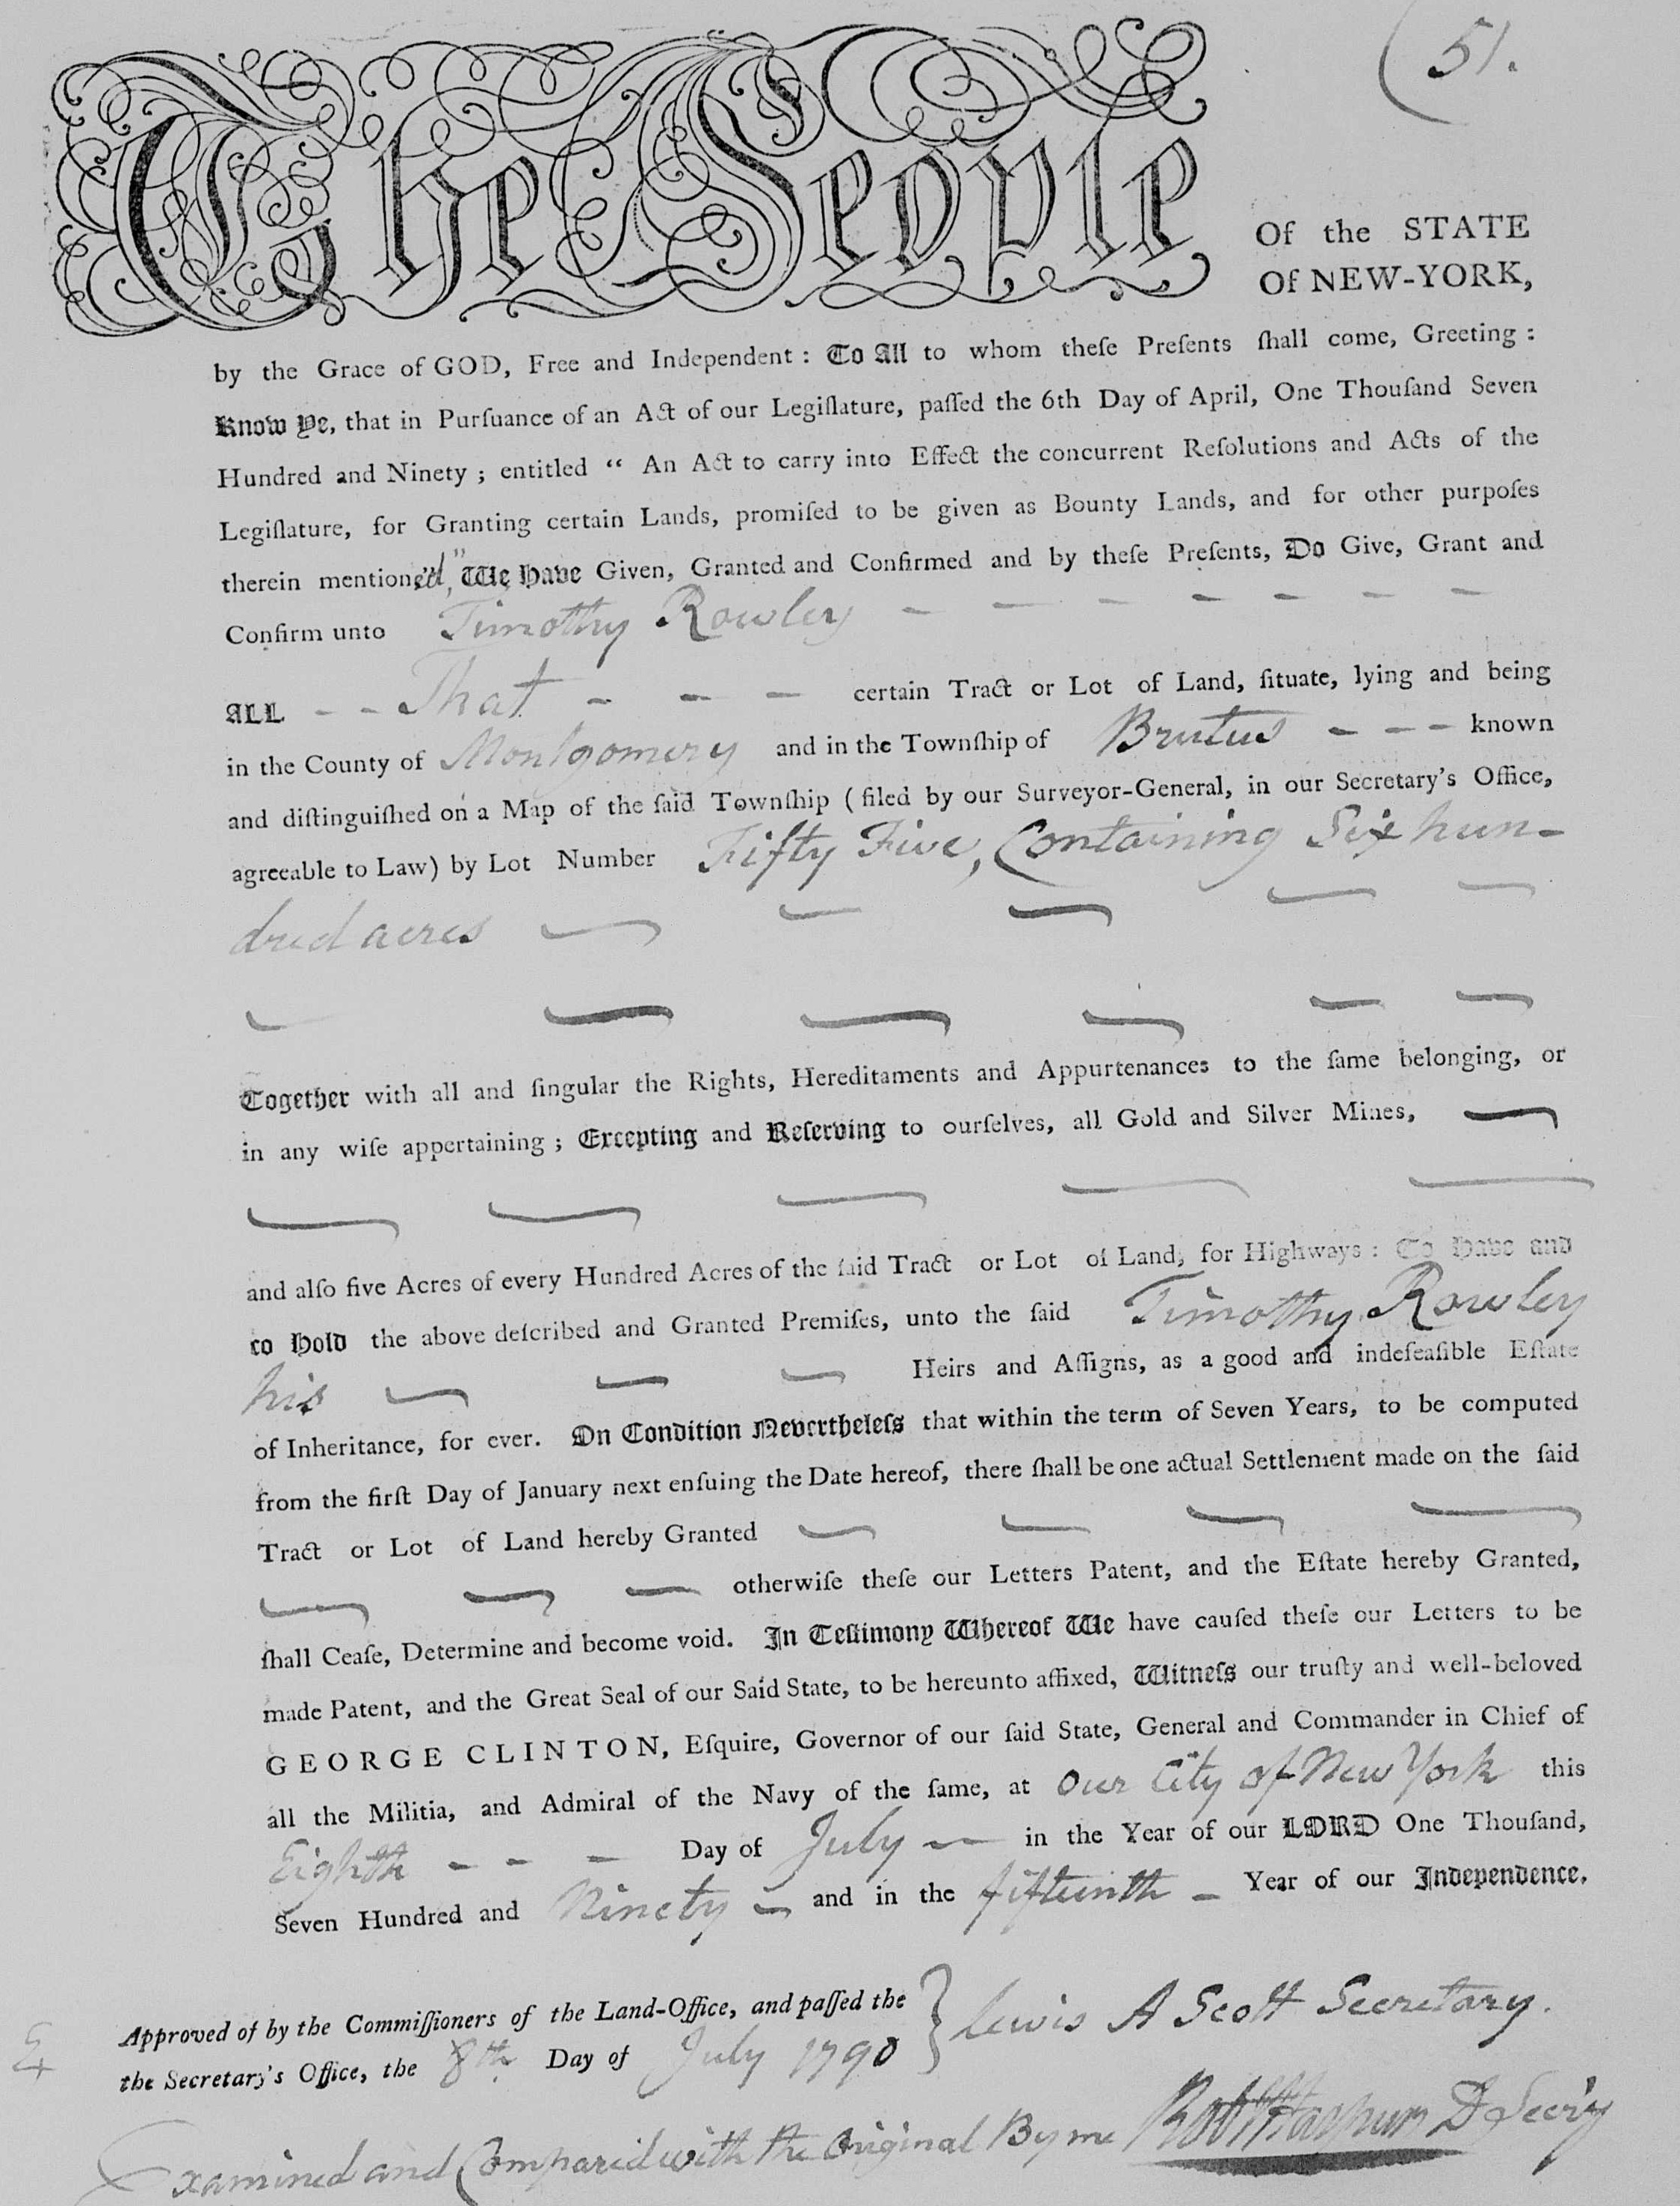 51.
The People
Of the STATE
Of NEW-YORK,
by the Grace of GOD, Free and Independent : To All to whom theſe Preſents ſhall come, Greeting :
Know Ye, that in Purſuance of an Act of our Legiſlature, paſſed the 6th Day of April, One Thouſand Seven
Hundred and Ninety ; entitled “ An Act to carry into Effect the concurrent Reſolutions and Acts of the
Legiſlature, for Granting certain Lands, promiſed to be given as Bounty Lands, and for other purpoſes
therein mentioned," We Have Given, Granted and Confirmed and by theſe Preſents, Do Give, Grant and
Confirm unto Timothy Rowley - - - - - - -
ALL - - That - - - certain Tract or Lot of Land, ſituate, lying and being
in the County of Montgomery and in the Townſhip of Brutus - - - known
and diſtinguiſhed on a Map of the ſaid Townſhip ( filed by our Surveyor-General, in our Secretary’s Office,
agreeable to Law) by Lot Number Fifty Five, Containing Six hun-
dred acres
Together with all and ſingular the Rights, Hereditaments and Appurtenances to the ſame belonging, or
in any wiſe appertaining ; Excepting and Reſerving to ourſelves, all Gold and Silver Mines,
and alſo five Acres of every Hundred Acres of the ſaid Tract or Lot of Land, for Highways : To Have and
to Hold the above deſcribed and Granted Premiſes, unto the ſaid Timothy Rowley
his Heirs and Aſſigns, as a good and indefeaſible Eſtate
of Inheritance, for ever. On Condition Nevertheleſs that within the term of Seven Years, to be computed
from the firſt Day of January next enſuing the Date hereof, there ſhall be one actual Settlement made on the ſaid
Tract or Lot of Land hereby Granted
otherwiſe theſe our Letters Patent, and the Eſtate hereby Granted,
ſhall Ceaſe, Determine and become void. In Teſtimony Whereof We have cauſed theſe our Letters to be
made Patent, and the Great Seal of our Said State, to be hereunto affixed, Witneſs our truſty and well-beloved
GEORGE CLINTON, Eſquire, Governor of our ſaid State, General and Commander in Chief of
all the Militia, and Admiral of the Navy of the ſame, at Our City of New York this
Eighth - - - Day of July - in the Year of our LORD One Thouſand,
Seven Hundred and Ninety - and in the fifteenth - Year of our Independence.
Approved of by the Commiſſioners of the Land-Office, and paſſed the } Lewis A Scott Secretary.
the Secretary’s Office, the 8th Day of July 1790
Examined and Compared with the Original By me Rob Harpur D Secry